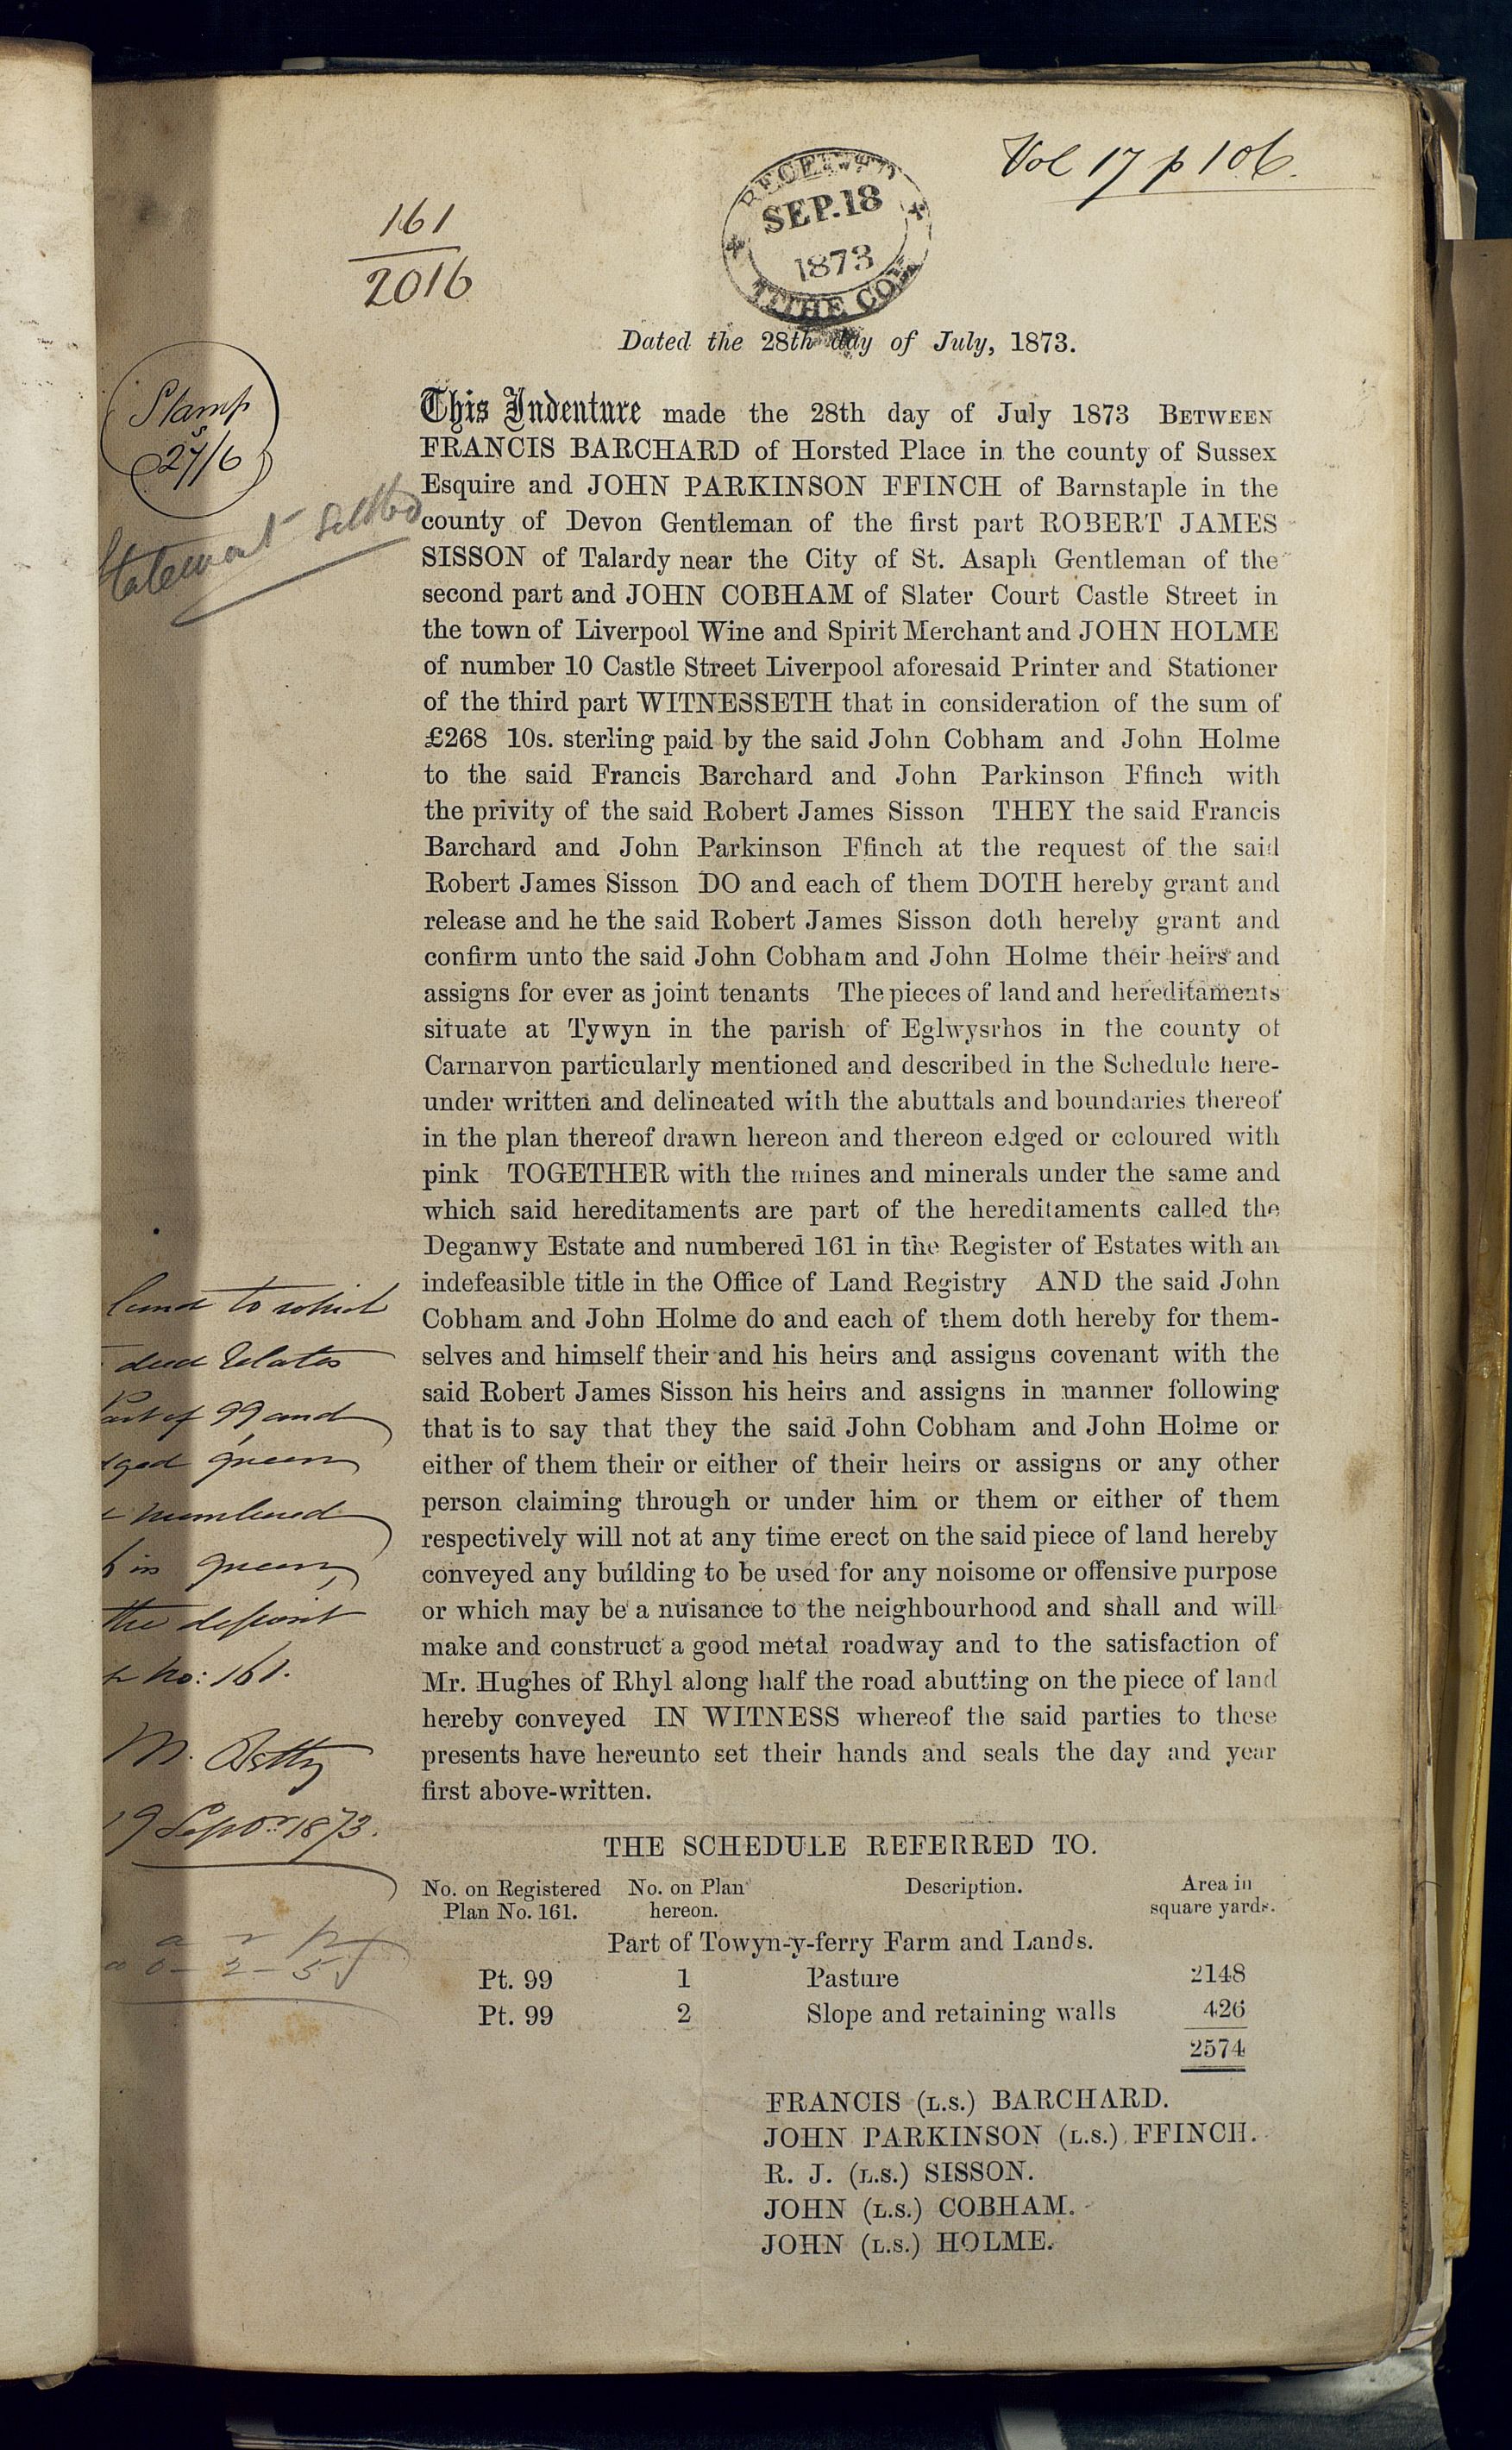 Vol 17 p 106.
161
2016
RECEIVED
SEP. 18
1873
TITHE COM
Dated the 28th day of July, 1873.
Stamp
s
27/6
Statement settled
This Indenture made the 28th day of July 1873 BETWEEN
FRANCIS BARCHARD of Horsted Place in the county of Sussex
Esquire and JOHN PARKINSON FFINCH of Barnstaple in the
county of Devon Gentleman of the first part ROBERT JAMES
SISSON of Talardy near the City of St. Asaph Gentleman of the
second part and JOHN COBHAM of Slater Court Castle Street in
the town of Liverpool Wine and Spirit Merchant and JOHN HOLME
of number 10 Castle Street Liverpool aforesaid Printer and Stationer
of the third part WITNESSETH that in consideration of the sum of
£268 10s. sterling paid by the said John Cobham and John Holme
to the said Francis Barchard and John Parkinson Ffinch with
the privity of the said Robert James Sisson THEY the said Francis
Barchard and John Parkinson Ffinch at the request of the said
Robert James Sisson DO and each of them DOTH hereby grant and
release and he the said Robert James Sisson doth hereby grant and
confirm unto the said John Cobham and John Holme their heirs and
assigns for ever as joint tenants The pieces of land and hereditaments
situate at Tywyn in the parish of Eglwysrhos in the county of
Carnarvon particularly mentioned and described in the Schedule here-
under written and delineated with the abuttals and boundaries thereof
in the plan thereof drawn hereon and thereon edged or coloured with
pink TOGETHER with the mines and minerals under the same and
which said hereditaments are part of the hereditaments called the
Deganwy Estate and numbered 161 in the Register of Estates with an
indefeasible title in the Office of Land Registry AND the said John
Cobham and John Holme do and each of them doth hereby for them-
selves and himself their and his heirs and assigns covenant with the
said Robert James Sisson his heirs and assigns in manner following
that is to say that they the said John Cobham and John Holme or
either of them their or either of their heirs or assigns or any other
person claiming through or under him or them or either of them
respectively will not at any time erect on the said piece of land hereby
conveyed any building to be used for any noisome or offensive purpose
or which may be a nuisance to the neighbourhood and shall and will
make and construct a good metal roadway and to the satisfaction of
Mr. Hughes of Rhyl along half the road abutting on the piece of land
hereby conveyed IN WITNESS whereof the said parties to these
presents have hereunto set their hands and seals the day and year
first above-written.
land to which
deed relates
Part of 99 and
green
numbered
in green
the deposit
no: 161.
19 Septr. 1873.
a r p
0 - 2 - 5
THE SCHEDULE REFERRED TO.
No. on Registered No. on Plan Description. Area in
Plan No. 161. hereon. square yards.
Part of Towyn-y-ferry Farm and Lands.
Pt. 99 1 Pasture 2148
Pt. 99 2 Slope and retaining walls 426
2574
FRANCIS (L.S.) BARCHARD.
JOHN PARKINSON (L.S.) FFINCH.
R. J. (L.S.) SISSON.
JOHN (L.S.) COBHAM.
JOHN (L.S.) HOLME.